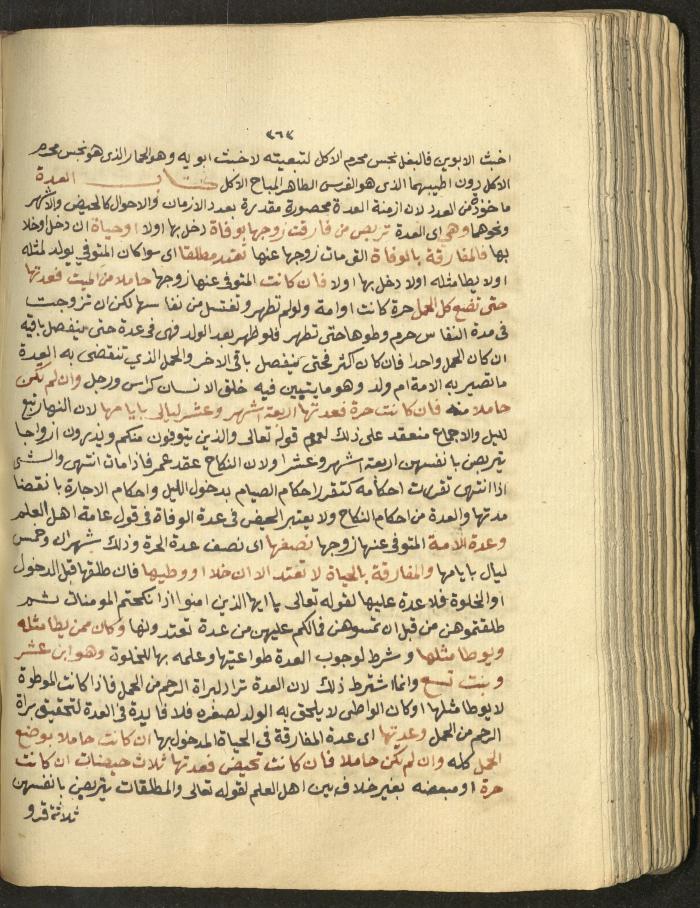 ٣٦٧
اخبث الابوين فالبغل نجس محرم الاكل لتبعيته لاخبث ابويه وهو الحمار الذى هو نجس محرم
الاكل دون اطيبهما الذى هو الفرس الطاهر المباح الاكل كتاب العدة
ماخوذة من العدد لان ازمنة العدة محصورة مقدرة بعدد الازمان والاحوال كالحيض والاشهر
ونحوهما وهي اى العدة تربص من فارقت زوجها بوفاة دخل بها اولا او حياة ان دخل او خلا
بها فالمفارقة بالوفاة التى مات زوجها عنها تعتد مطلقا اى سوا كان المتوفي يولد لمثله
اولا يطا مثله اولا دخل بها اولا فان كانت المتوفي عنها زوجها حاملا من الميت فعدتها
حتى تضع كل الحمل حرة كانت او امة ولو لم تطهر وتغتسل من نفاسها لكن ان تزوجت
فى مدة النفاس حرم وطوها حتى تطهر فلو ظهر بعد الولد فهى فى عدة حتى ينفصل باقيه
ان كان الحمل واحدا فان كان اكثر فحتى ينفصل باقى الاخر والحمل الذي تنقضى به العدة
ما تصير به الامة ام ولد وهو ما يتبين فيه خلق الانسان كراس ورجل وان لم تكن
حاملا منه فان كانت حرة فعدتها اربعة اشهر وعشر ليالى بايامها لان النهار تبع
لليل والاجماع منعقد على ذلك لعموم قوله تعالى والذين يتوفون منكم ويذرون ازواجا
يتربصن بانفسهن اربعة اشهر وعشرا ولان النكاح عقد عمر فاذا مات انتهى والشى
اذا انتهى تقررت احكامه كتقرر احكام الصيام بدخول الليل واحكام الاجارة بانقضا
مدتها والعدة من احكام النكاح ولا يعتبر الحيض فى عدة الوفاة فى قول عامة اهل العلم
وعدة الامة المتوفى عنها زوجها نصفها اى نصف عدة الحرة وذلك شهران وخمس
ليال بايامها والمفارقة بالحياة لا تعتد الا ان خلا او وطيها فان طلقها قبل الدخول
او الخلوة فلا عدة عليها لقوله تعالى يا ايها الذين امنوا اذا نكحتم المومنات ثم
طلقتموهن من قبل ان تمسوهن فما لكم عليهن من عدة تعتدونها وكان ممن يطا مثله
ويوطا مثلها وشرط لوجوب العدة طواعيتها وعلمه بها للخلوة وهو ابن عشر
وبنت تسع وانما اشترط ذلك لان العدة تراد لبراة الرحم من الحمل فاذا كانت الموطوة
لا يوطا مثلها او كان الواطى لا يلحق به الولد لصغره فلا فايدة فى العدة لتحقيق براة
الرحم من الحمل وعدتها اى عدة المفارقة فى الحياة المدخول بها ان كانت حاملا بوضع
الحمل كله وان لم تكن حاملا فان كانت تحيض فعدتها ثلاث حيضات ان كانت
حرة او مبعضه بغير خلاف بين اهل العلم لقوله تعالى والمطلقات يتربصن بانفسهن
ثلاثة قرو